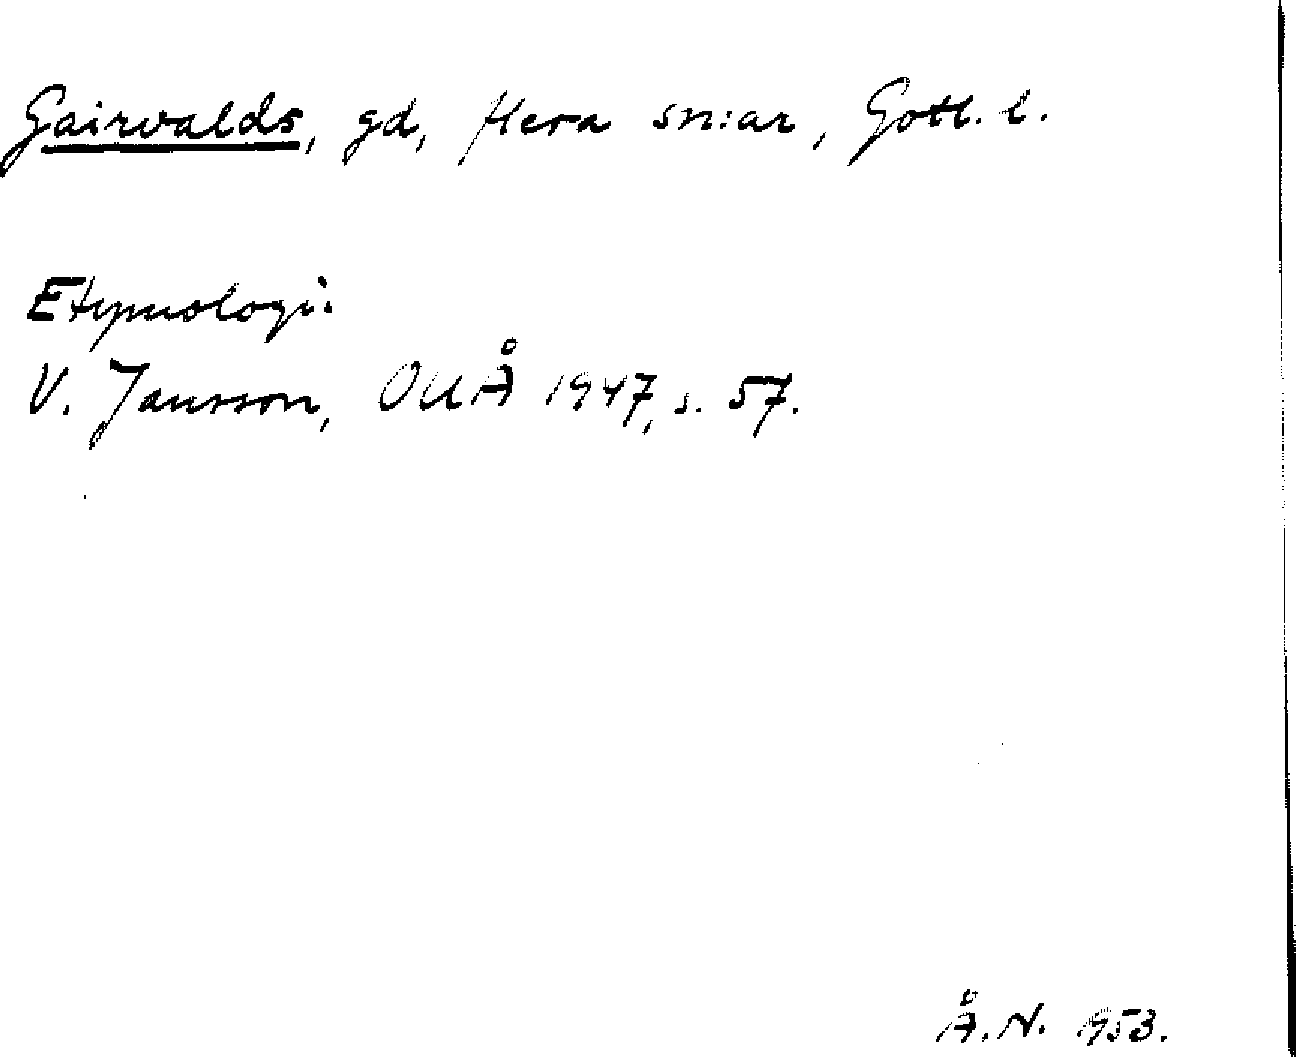 Gairvalds, gd, flera sn:ar, Gotl. l.
Etymologi:
V. Jansson, OUÅ 1947, s. 57.
Å.N. 1953.